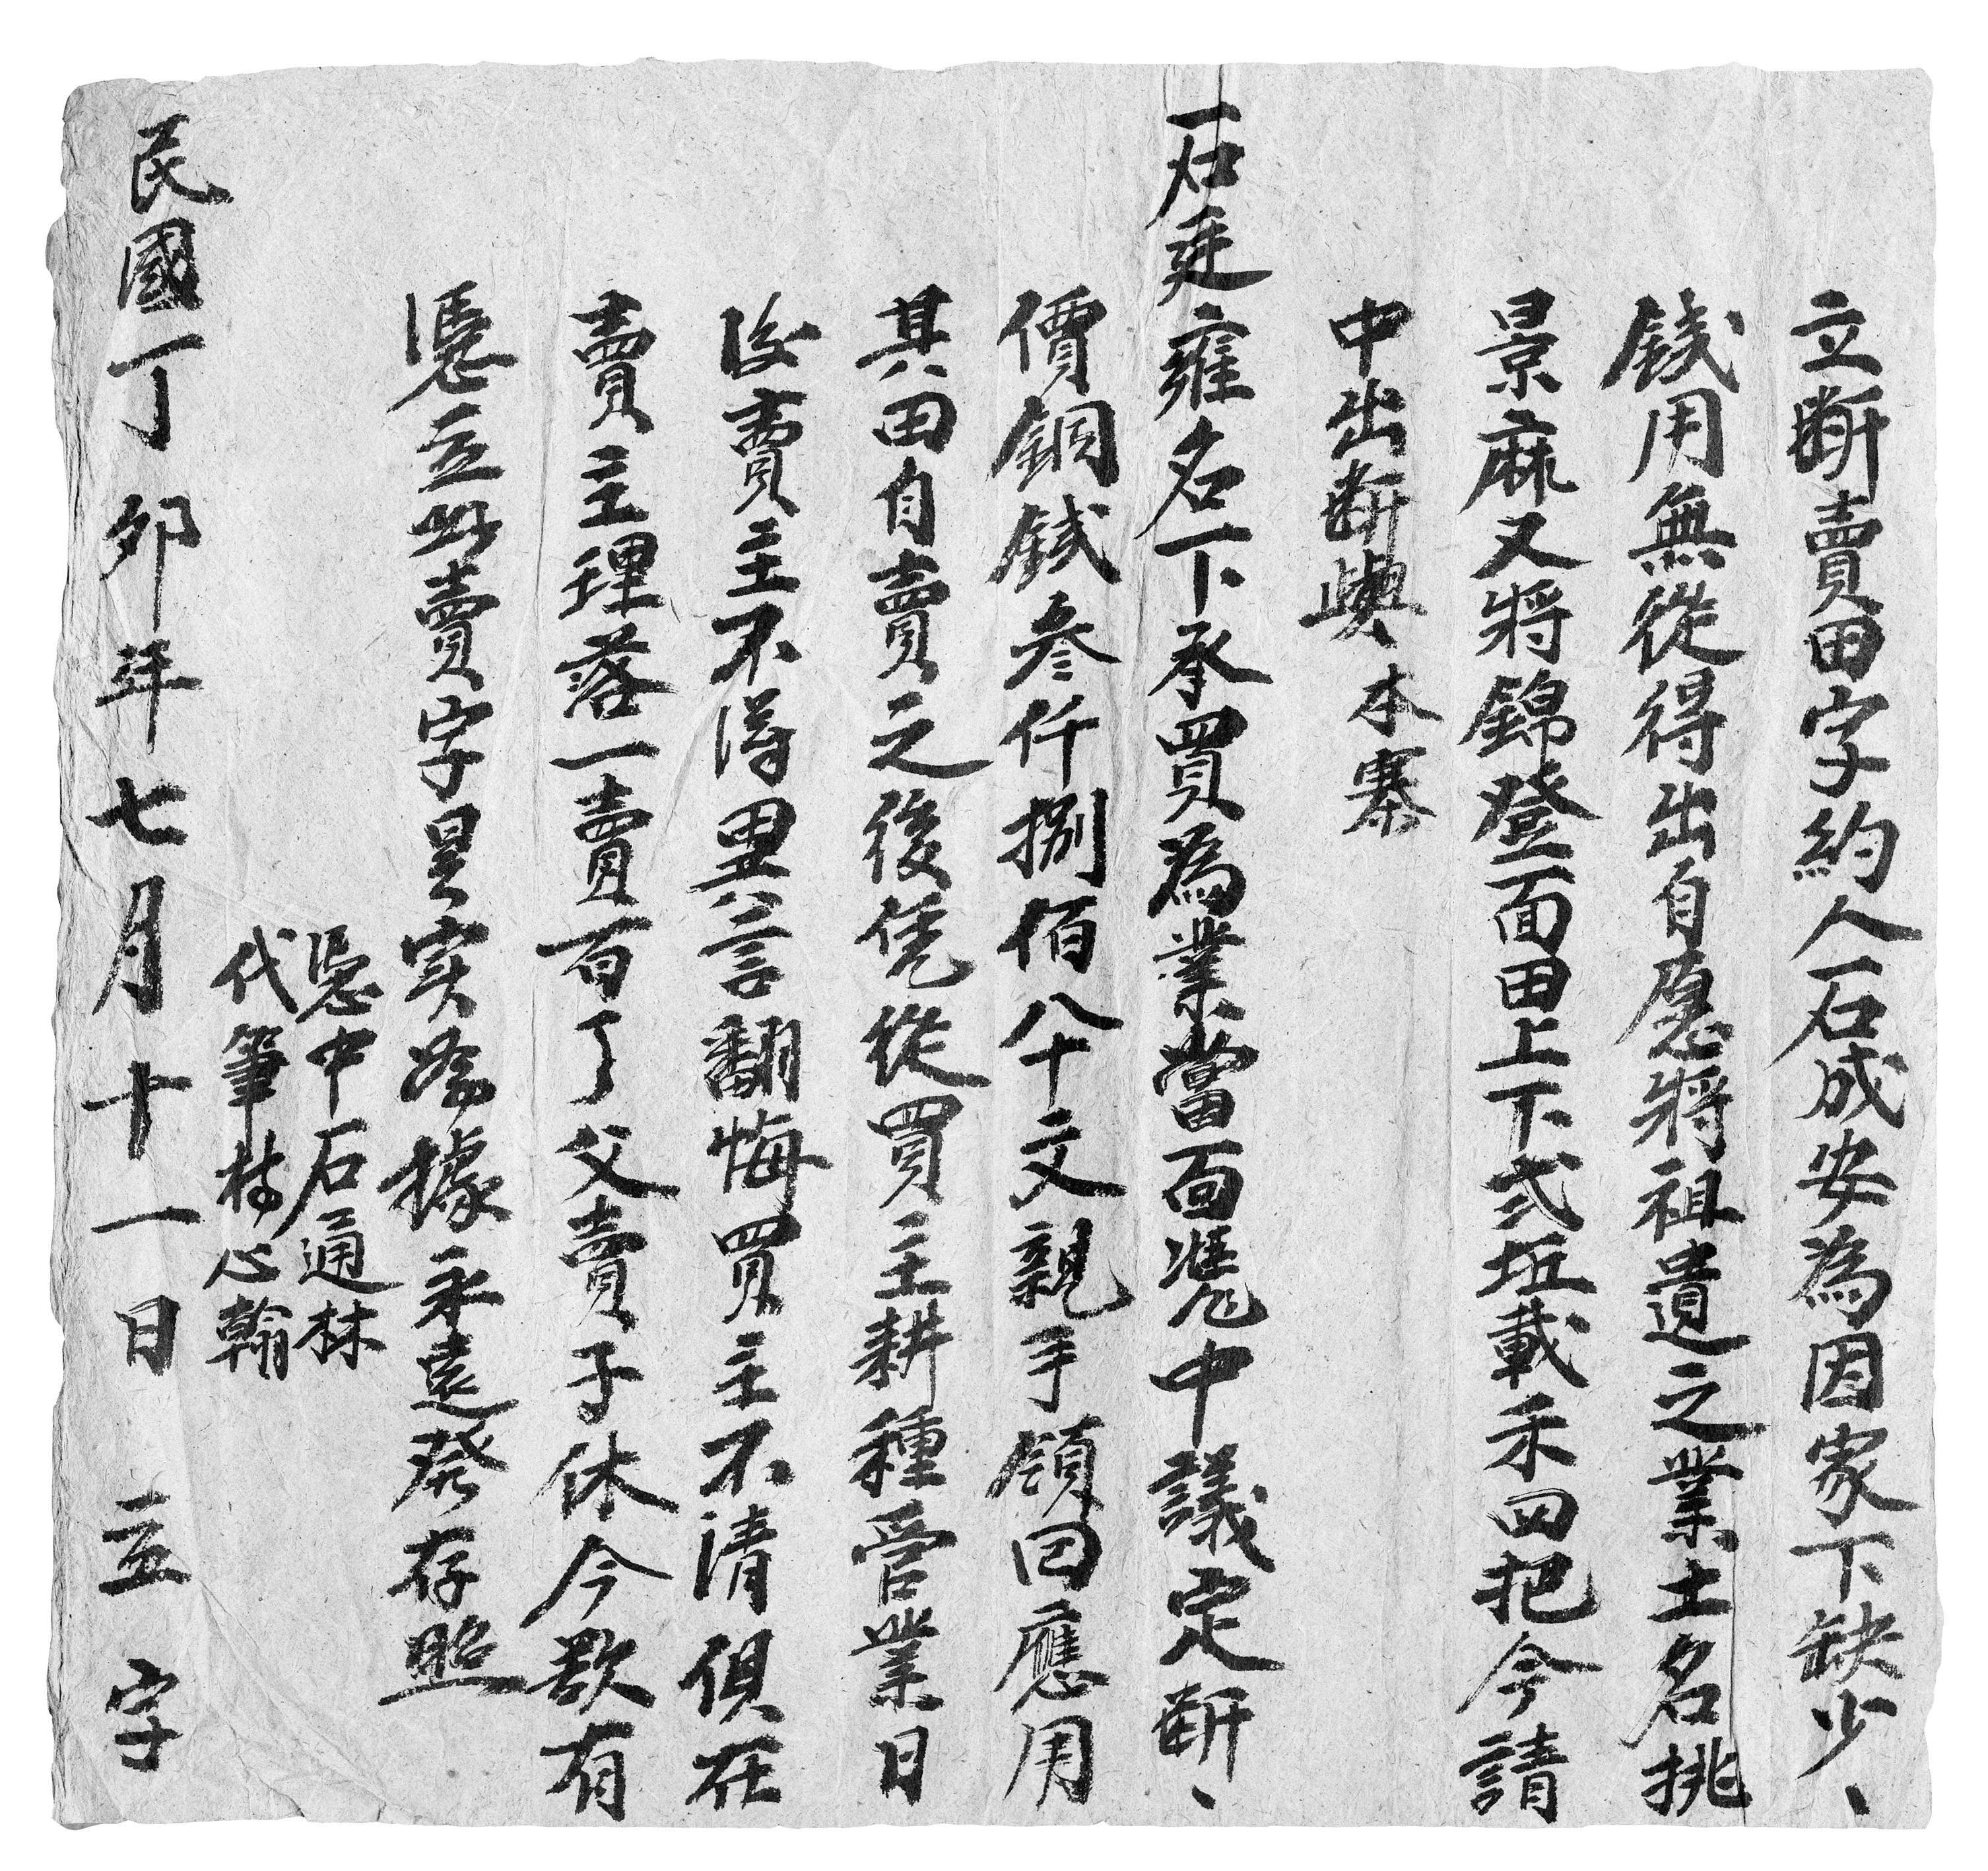 立断賣田字約人石成安為因家下缺少、
錢用無從得出自愿將祖遺之業土名挑
景麻又將錦登一面田上下弐坵載禾四把今請
中出断與、本寨
石廷雍名下承買為業當面凴中議定断、
價銅錢叁仟捌佰八十文親手領回應用
其田自賣之後凭從買主耕種管業日
后賣主不得異言翻悔買主不清俱在
賣主理落一賣百了父賣子休今欲有
憑立此賣字是实為據永遠發存照
憑中石通林
代筆林心翰
民國丁卯年七月十一日 立 字